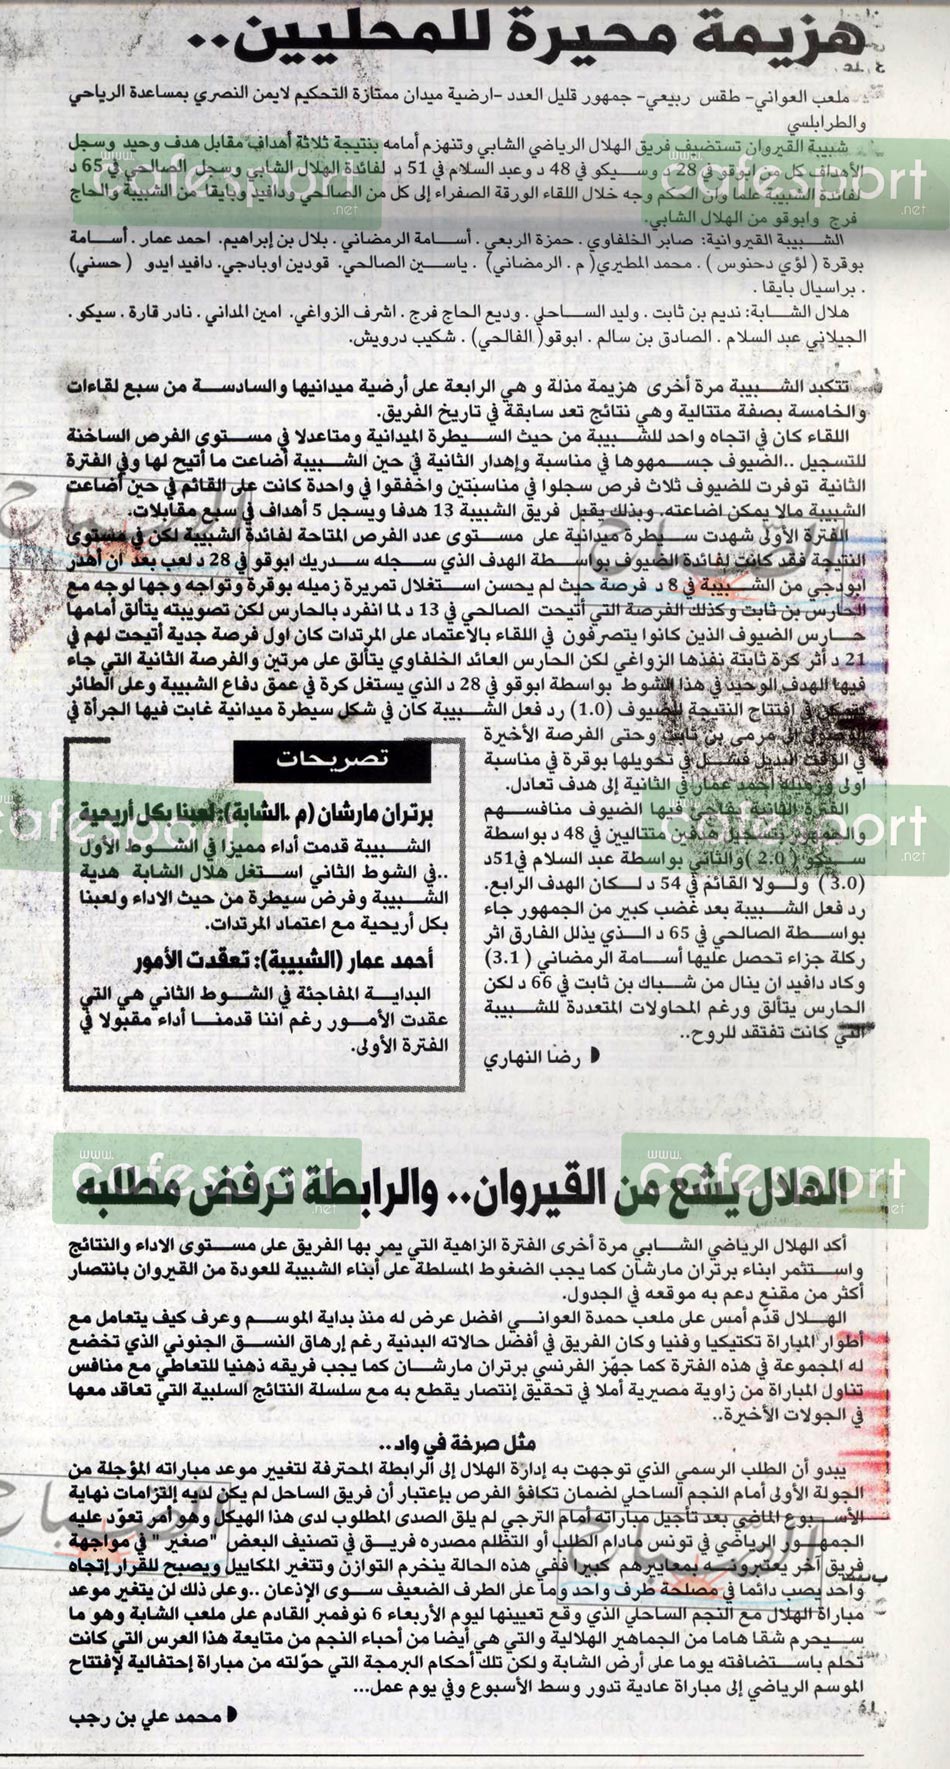 هزيمة محيرة للمحليين..
ملعب العواني- طقس ربيعي- جمهور قليل العدد -ارضية ميدان ممتازة التحكيم لايمن النصري بمساعدة الرياحي
والطرابلسي
شبيبة القيروان تستضيف فريق الهلال الرياضي الشابي وتنهزم أمامه بنتيجة ثلاثة أهداف مقابل هدف وحيد وسجل
الأهداف كل من ابوقو في 28 د وسيكو في 48 د وعبد السلام في 51 د لفائدة الهلال الشابي وسجل الصالحي في 65 د
لفائدة الشبيبة علما وان الحكم وجه خلال اللقاء الورقة الصفراء إلى كل من الصالحي ودافيد وبايقا من الشبيبة والحاج
فرج وابوقو من الهلال الشابي.
الشبيبة القيروانية: صابر الخلفاوي . حمزة الربعي . أسامة الرمضاني . بلال بن إبراهيم. احمد عمار . أسامة
بوقرة ( لؤي دحنوس ) . محمد المطيري( م . الرمضاني) . ياسين الصالحي. قودين اوبادجي. دافيد ايدو ( حسني)
. براسيال بايقا .
هلال الشابة: نديم بن ثابت . وليد الساحلي . وديع الحاج فرج . اشرف الزواغي. امين المداني . نادر قارة . سيكو .
الجيلاني عبد السلام . الصادق بن سالم . ابوقو( الفالحي) . شكيب درويش.
تتكبد الشبيبة مرة أخرى هزيمة مذلة و هي الرابعة على أرضية ميدانيها والسادسة من سبع لقاءات
والخامسة بصفة متتالية وهي نتائج تعد سابقة في تاريخ الفريق.
اللقاء كان في اتجاه واحد للشبيبة من حيث السيطرة الميدانية ومتاعدلا في مستوى الفرص الساخنة
للتسجيل ..الضيوف جسمهوها في مناسبة وإهدار الثانية في حين الشبيبة أضاعت ما أتيح لها وفي الفترة
الثانية توفرت للضيوف ثلاث فرص سجلوا في مناسبتين واخفقوا في واحدة كانت على القائم في حين أضاعت
الشبيبة مالا يمكن اضاعته. وبذلك يقبل فريق الشبيبة 13 هدفا ويسجل 5 أهداف في سبع مقابلات.
الفترة الأولى شهدت سيطرة ميدانية على مستوى عدد الفرص المتاحة لفائدة الشبيبة لكن في مستوى
النتيجة فقد كانت لفائدة الضيوف بواسطة الهدف الذي سجله سدريك ابوقو في 28 د لعب بعد ان أهدر
ابودجي من الشبيبة في 8 د فرصة حيث لم يحسن استغلال تمريرة زميله بوقرة وتواجه وجها لوجه مع
الحارس بن ثابت وكذلك الفرصة التي أتيحت الصالحي في 13 د لما انفرد بالحارس لكن تصويبته يتألق أمامها
حارس الضيوف الذين كانوا يتصرفون في اللقاء بالاعتماد على المرتدات كان اول فرصة جدية أتيحت لهم في
21 د أثر كرة ثابتة نفذها الزواغي لكن الحارس العائد الخلفاوي يتألق على مرتين والفرصة الثانية التي جاء
فيها الهدف الوحيد في هذا الشوط بواسطة ابوقو في 28 د الذي يستغل كرة في عمق دفاع الشبيبة وعلى الطائر
في إفتتاح النتيجة للضيوف (1.0) رد فعل الشبيبة كان في شكل سيطرة ميدانية غابت فيها الجرأة في
الوصول إلى مرمى بن ثابت وحتى الفرصة الأخيرة
في الوقت البديل فشل في تحويلها بوقرة في مناسبة
اولى وزميله احمد عمار في الثانية إلى هدف تعادل.
الفترة الثانية يفاجئ فيها الضيوف منافسهم
والجمهور بتسجيل هدفين متتاليين في 48 د بواسطة
سيكو ( 2.0 )والثاني بواسطة عبد السلام في51د
(3.0 ) ولولا القائم في 54 د لكان الهدف الرابع.
رد فعل الشبيبة بعد غضب كبير من الجمهور جاء
بواسطة الصالحي في 65 د الذي يذلل الفارق اثر
ركلة جزاء تحصل عليها أسامة الرمضاني ( 3.1)
وكاد دافيد ان ينال من شباك بن ثابت في 66 د لكن
الحارس يتألق ورغم المحاولات المتعددة للشبيبة
التي كانت تفتقد للروح..
رضا النهاري
تصريحات
برتران مارشان (م .الشابة): لعبنا بكل أريحية
الشبيبة قدمت أداء مميزا في الشوط الأول
..في الشوط الثاني استغل هلال الشابة هدية
الشبيبة وفرض سيطرة من حيث الاداء ولعبنا
بكل أريحية مع اعتماد المرتدات.
أحمد عمار (الشبيبة): تعقدت الأمور
البداية المفاجئة في الشوط الثاني هي التي
عقدت الأمور رغم اننا قدمنا أداء مقبولا في
الفترة الأولى.
الهلال يشع من القيروان.. والرابطة ترفض مطلبه
أكد الهلال الرياضي الشابي مرة أخرى الفترة الزاهية التي يمر بها الفريق على مستوى الاداء والنتائج
واستثمر ابناء برتران مارشان كما يجب الضغوط المسلطة على أبناء الشبيبة للعودة من القيروان بانتصار
أكثر من مقنع دعم به موقعه في الجدول.
الهلال قدّم أمس على ملعب حمدة العواني افضل عرض له منذ بداية الموسم وعرف كيف يتعامل مع
أطوار المباراة تكتيكيا وفنيا وكان الفريق في أفضل حالاته البدنية رغم إرهاق النسق الجنوني الذي تخضع
له المجموعة في هذه الفترة كما جهّز الفرنسي برتران مارشان كما يجب فريقه ذهنيا للتعاطي مع منافس
تناول المباراة من زاوية مصيرية أملا في تحقيق إنتصار يقطع به مع سلسلة النتائج السلبية التي تعاقد معها
في الجولات الأخيرة..
مثل صرخة في واد..
يبدو أن الطلب الرسمي الذي توجهت به إدارة الهلال إلى الرابطة المحترفة لتغيير موعد مباراته المؤجلة من
الجولة الأولى أمام النجم الساحلي لضمان تكافؤ الفرص بإعتبار أن فريق الساحل لم يكن لديه إلتزامات نهاية
الأسبوع الماضي بعد تأجيل مباراته أمام الترجي لم يلق الصدى المطلوب لدى هذا الهيكل وهو أمر تعوّد عليه
الجمهور الرياضي في تونس مادام الطلب أو التظلم مصدره فريق في تصنيف البعض "صغير" في مواجهة
فريق آخر يعتبرونه بمعاييرهم كبيرا ففي هذه الحالة ينخرم التوازن وتتغير المكاييل ويصبح للقرار إتجاه
واحد يصب دائما في مصلحة طرف واحد وما على الطرف الضعيف سوى الإذعان ..وعلى ذلك لن يتغير موعد
مباراة الهلال مع النجم الساحلي الذي وقع تعيينها ليوم الأربعاء 6 نوفمبر القادم على ملعب الشابة وهو ما
سيحرم شقا هاما من الجماهير الهلالية والتي هي أيضا من أحباء النجم من متابعة هذا العرس التي كانت
تحلم باستضافته يوما على أرض الشابة ولكن تلك أحكام البرمجة التي حوّلته من مباراة إحتفالية لإفتتاح
الموسم الرياضي إلى مباراة عادية تدور وسط الأسبوع وفي يوم عمل...
محمد علي بن رجب
www.
cafesport
.net
www.
cafesport
.net
cafesport
www.
cafesport
.net
www.
cafesport
.net
www.
cafesport
.net
الصباح
الصباح
الصباح
الصباح